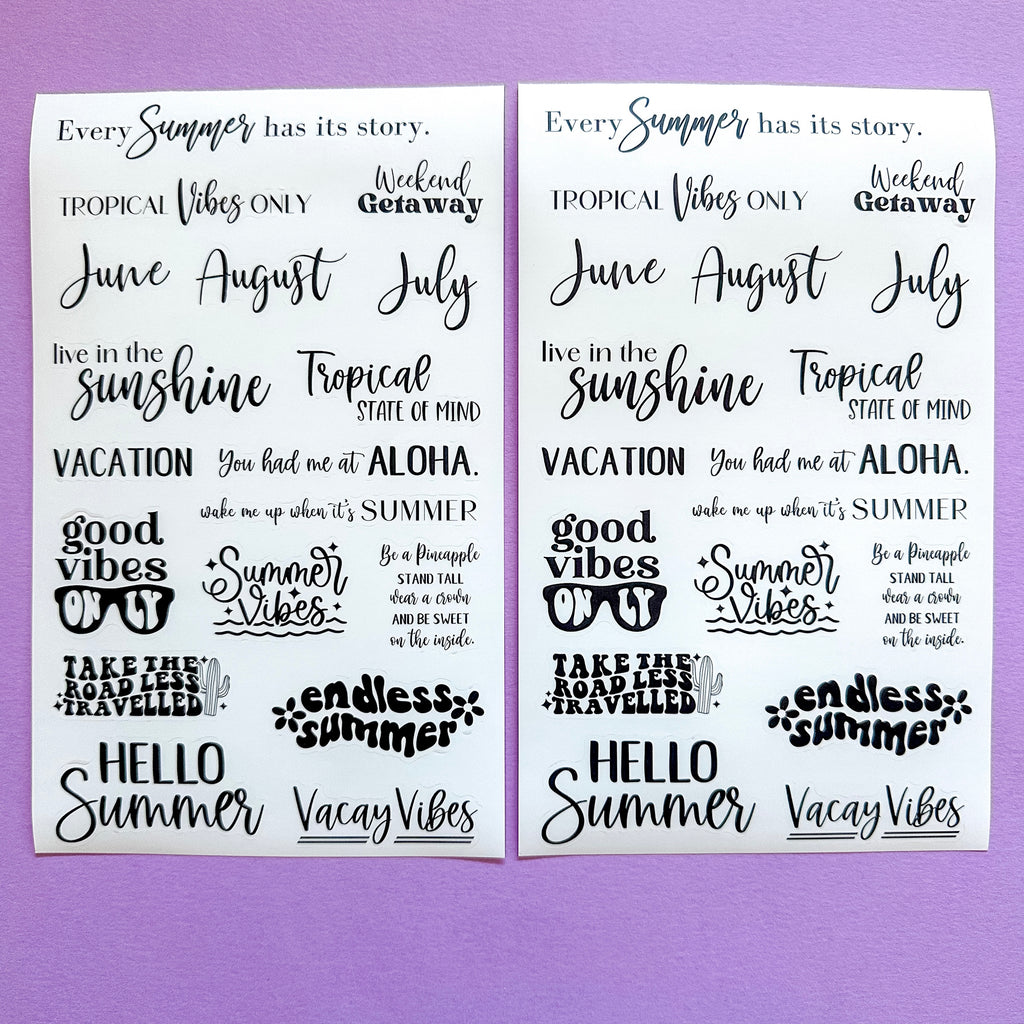 Every Summer has its story.
TROPICAL Vibes ONLY
Weekend
Getaway
June August July
live in the
sunshine
Tropical
STATE OF MIND
VACATION
You had me at ALOHA.
good
vibes
ONLY
wake me up when it's SUMMER
Summer
Vibes
Be a Pineapple
STAND TALL
wear a crown
AND BE SWEET
on the inside.
TAKE THE
ROAD LESS
TRAVELLED
endless
summer
HELLO
Summer
Vacay Vibes
Every Summer has its story.
TROPICAL Vibes ONLY
Weekend
Getaway
June August July
live in the
sunshine
Tropical
STATE OF MIND
VACATION
You had me at ALOHA.
good
vibes
ONLY
wake me up when it's SUMMER
Summer
Vibes
Be a Pineapple
STAND TALL
wear a crown
AND BE SWEET
on the inside.
TAKE THE
ROAD LESS
TRAVELLED
endless
summer
HELLO
Summer
Vacay Vibes